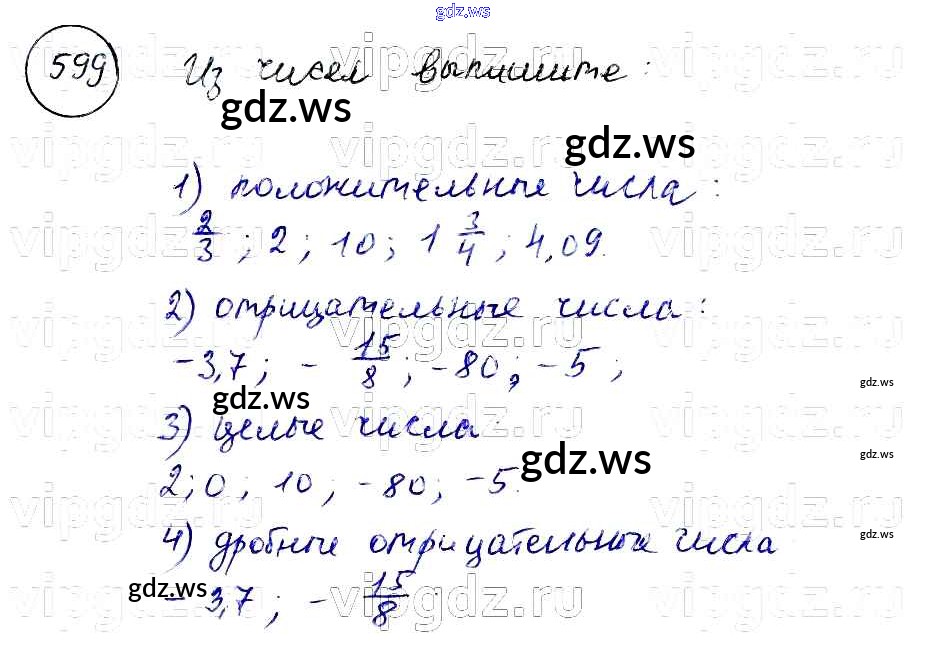 gdz.ws
599 Из чисел выпишите:
gdz.ws
gdz.ws
1) положительные числа:
2/3; 2; 10; 1 3/4; 4,09.
2) отрицательные числа:
-3,7; - 15/8; -80; -5;
gdz.ws
gdz.ws
3) целые числа:
gdz.ws
gdz.ws
2; 0; 10; -80; -5.
4) дробные отрицательные числа
gdz.ws
gdz.ws
-3,7; - 15/8.
vipgdz.ru